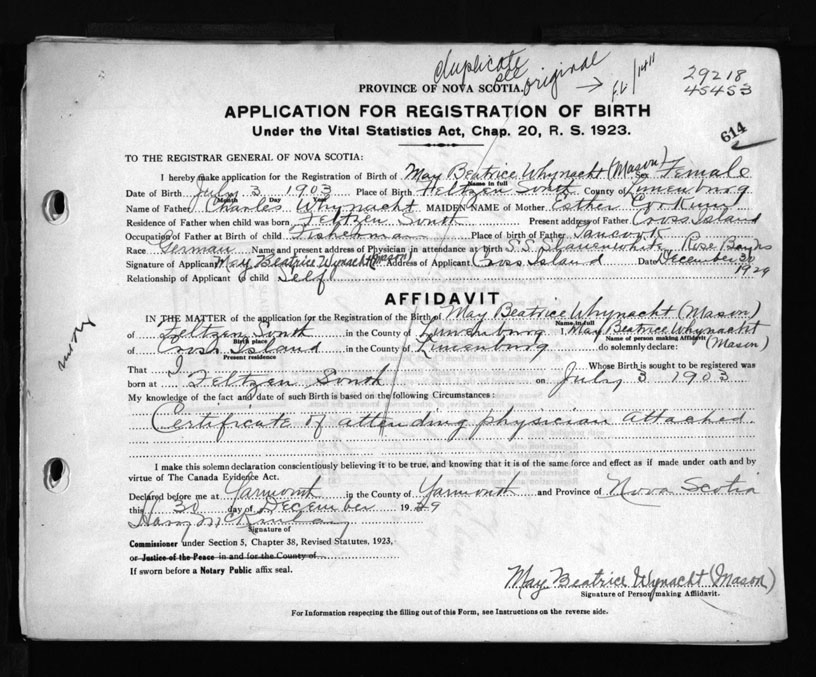 duplicate
see original →
29218
45453
614
PROVINCE OF NOVA SCOTIA.
APPLICATION FOR REGISTRATION OF BIRTH
Under the Vital Statistics Act, Chap. 20, R. S. 1923.
TO THE REGISTRAR GENERAL OF NOVA SCOTIA:
I hereby make application for the Registration of Birth of May Beatrice Whynacht (Mason) Sex Female
Name in full
Date of Birth July 3 1903 Place of Birth Feltzen South County of Lunenburg
Month Day Year
Name of Father Charles Whynacht MAIDEN NAME of Mother Esther Corkum
Residence of Father when child was born Feltzen South Present address of Father Cross Island
Occupation of Father at Birth of child Fisherman Place of birth of Father Tancook
Race German Name and present address of Physician in attendance at birth S.S. Slauenwhite Rose Bay NS
Signature of Applicant May Beatrice Wynacht (Mason) Address of Applicant Cross Island Date December 30
1929
Relationship of Applicant to child Self
AFFIDAVIT
IN THE MATTER of the application for the Registration of the Birth of May Beatrice Whynacht (Mason)
Name in full
of Feltzen South in the County of Lunenburg I May Beatrice Whynacht
Birth place Name of person making Affidavit (Mason)
of Cross Island in the County of Lunenburg do solemnly declare:
Present residence
That I Whose Birth is sought to be registered was
born at Feltzen South on July 3 1903
My knowledge of the fact and date of such Birth is based on the following Circumstances:
Certificate of attending physician attached.
I make this solemn declaration conscientiously believing it to be true, and knowing that it is of the same force and effect as if made under oath and by
virtue of The Canada Evidence Act.
Declared before me at Yarmouth in the County of Yarmouth and Province of Nova Scotia
this 30 day of December 1929
Signature of
Commissioner under Section 5, Chapter 38, Revised Statutes, 1923,
or Justice of the Peace in and for the County of
If sworn before a Notary Public affix seal.
May Beatrice Wynacht (Mason)
Signature of Person making Affidavit.
For Information respecting the filling out of this Form, see Instructions on the reverse side.